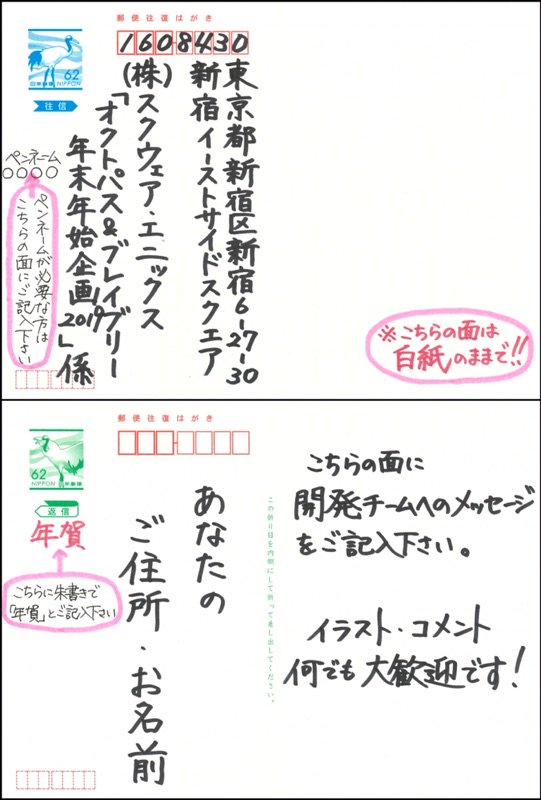 郵便往復はがき
1608430
62
日本郵便 NIPPON
往信
東京都新宿区新宿6-27-30
新宿イーストサイドスクエア
(株)スクウェア・エニックス
「オクトパス&ブレイブリー
年末年始企画2019」係
ペンネーム
○○○○
ペンネームが必要な方は
こちらの面にご記入下さい
※こちらの面は
白紙のままで!!
郵便往復はがき
62
NIPPON 日本郵便
返信
年賀
こちらに朱書きで
「年賀」とご記入下さい
あなたの
ご住所・お名前
この折り目を内側にして折って差し出してください。
こちらの面に
開発チームへのメッセージ
をご記入下さい。
イラスト・コメント
何でも大歓迎です!